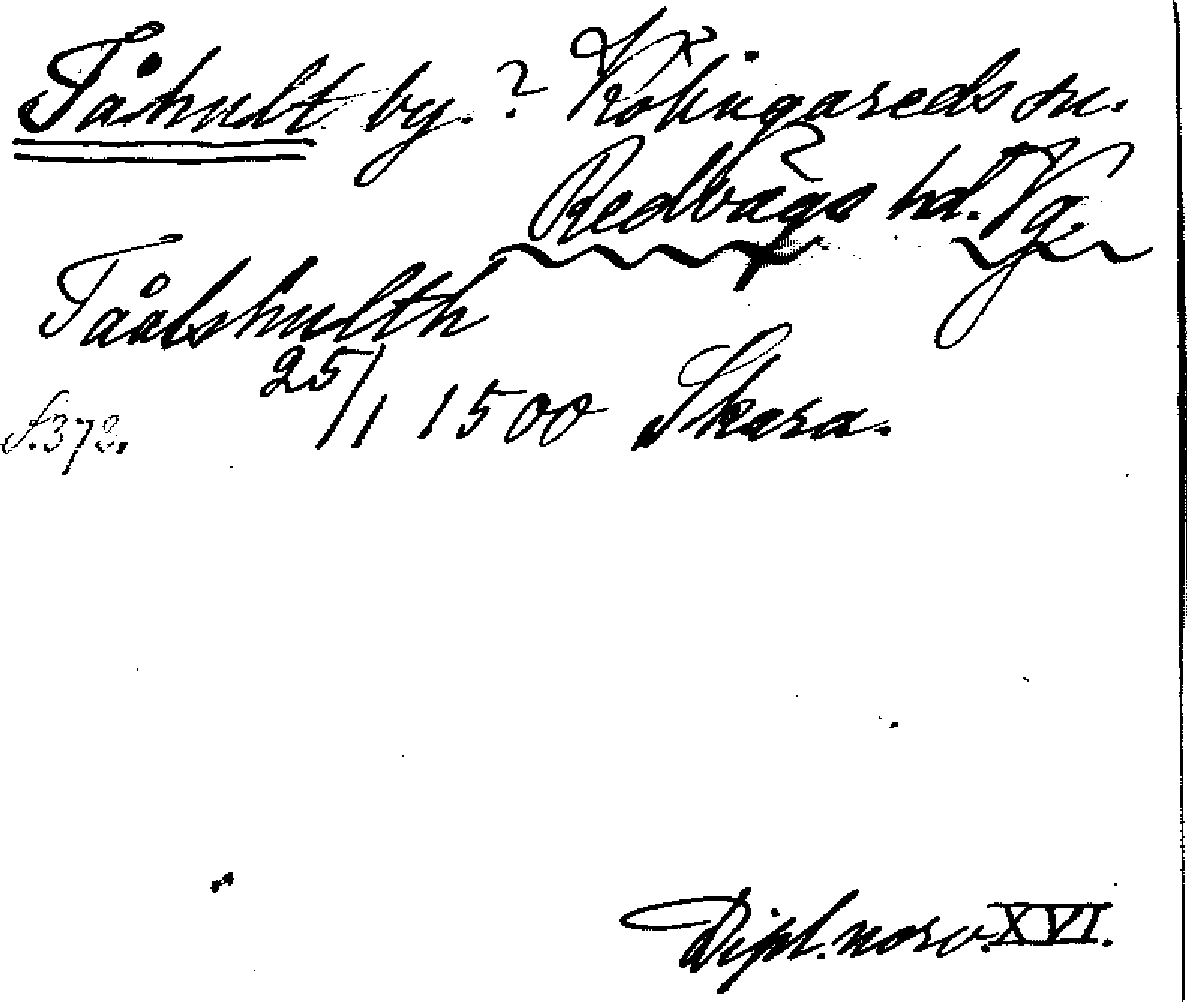 Tåhult by. ? Kölingareds sn.
Redvägs hd. Vg.
Tåålshulth
25/1 1500 Skara.
S. 372.
Dipl. norv. XVI.